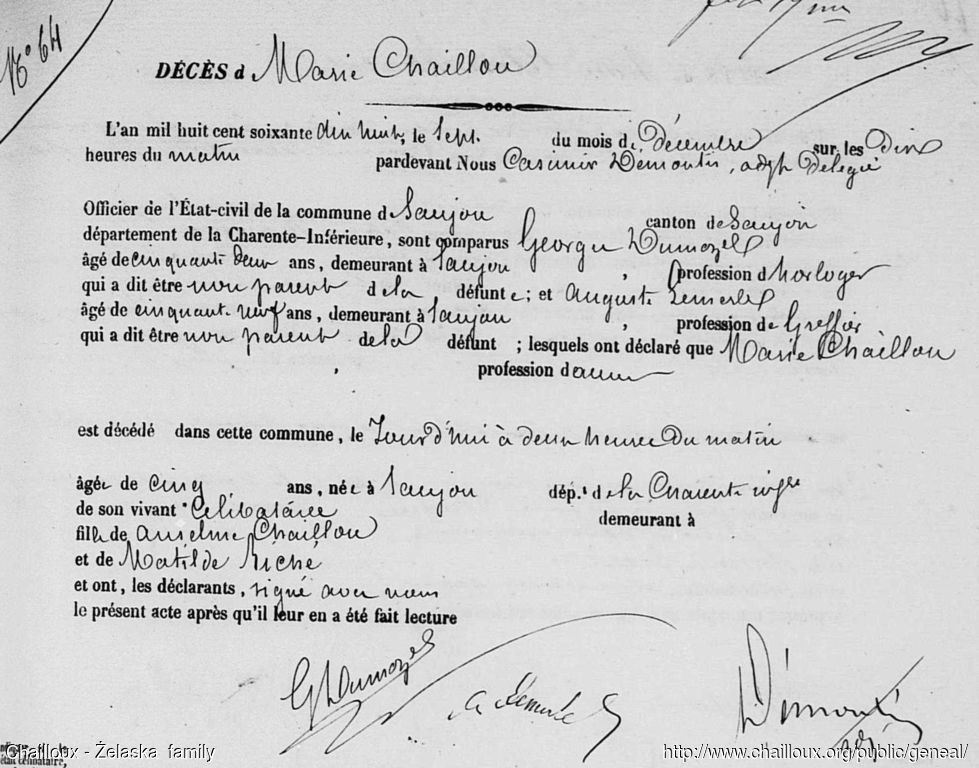 N° 64
DÉCÈS d Marie Chaillou
L'an mil huit cent soixante dix huit, le Sept du mois de Décembre sur les Dix
heures du matin pardevant Nous Casimir Démontis, adjt Délégué
Officier de l'État-civil de la commune d Saujon canton de Saujon
département de la Charente-Inférieure, sont comparus Georges Dumozel
âgé de cinquante deux ans, demeurant à Saujon, profession d horloger
qui a dit être non parent de la défunte; et Auguste Lemerle
âgé de cinquante neuf ans, demeurant à Saujon, profession de Greffier
qui a dit être non parent de la défunt ; lesquels ont déclaré que Marie Chaillou
, profession d aucune
est décédé dans cette commune, le Jour d'hui à deux heures du matin
âgée de cinq ans, née à Saujon dép.t de la Charente infre
de son vivant Célibataire demeurant à
fille de Anselme Chaillou
et de Matilde Riché
et ont, les déclarants, signé avec nous
le présent acte après qu'il leur en a été fait lecture
G Dumozel
A Lemerle
Démontis
Chailloux - Żelaska family
http://www.chailloux.org/public/geneal/
était célibataire,